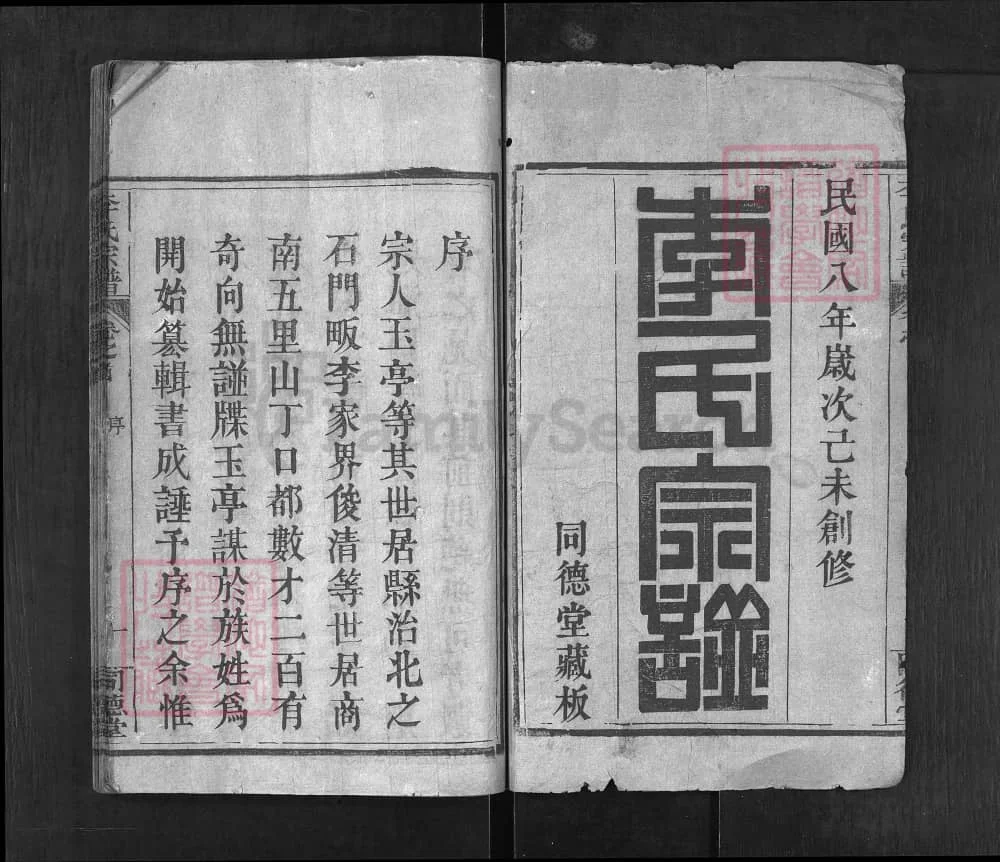 民國八年歲次己未創修
李氏宗譜
同德堂藏板
序
宗人玉亭等其世居縣治北之
石門畈李家界俊清等世居商
南五里山丁口都數才二百有
奇向無譜牒玉亭謀於族姓爲
開始纂輯書成諈予序之余惟
李氏宗譜
卷之首
序
一
同德堂
FamilySearch